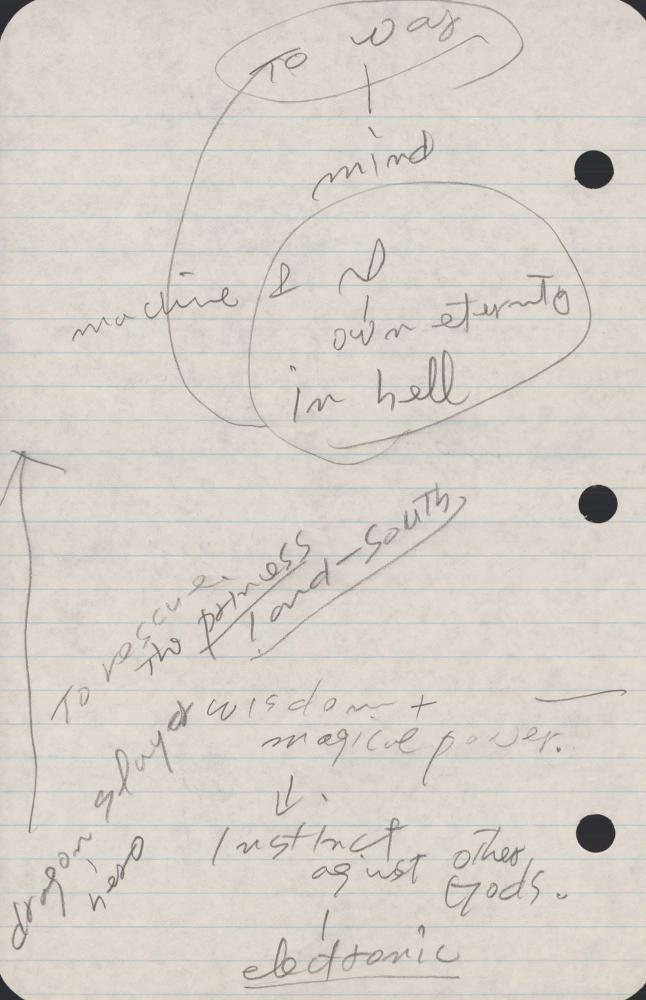 To way
mind
machine &
own eternto
in hell
To rescue.
the priness
land-South
dragon slayer
hero
wisdom +
magical power.
Instinct
aginst other
Gods.
electronic